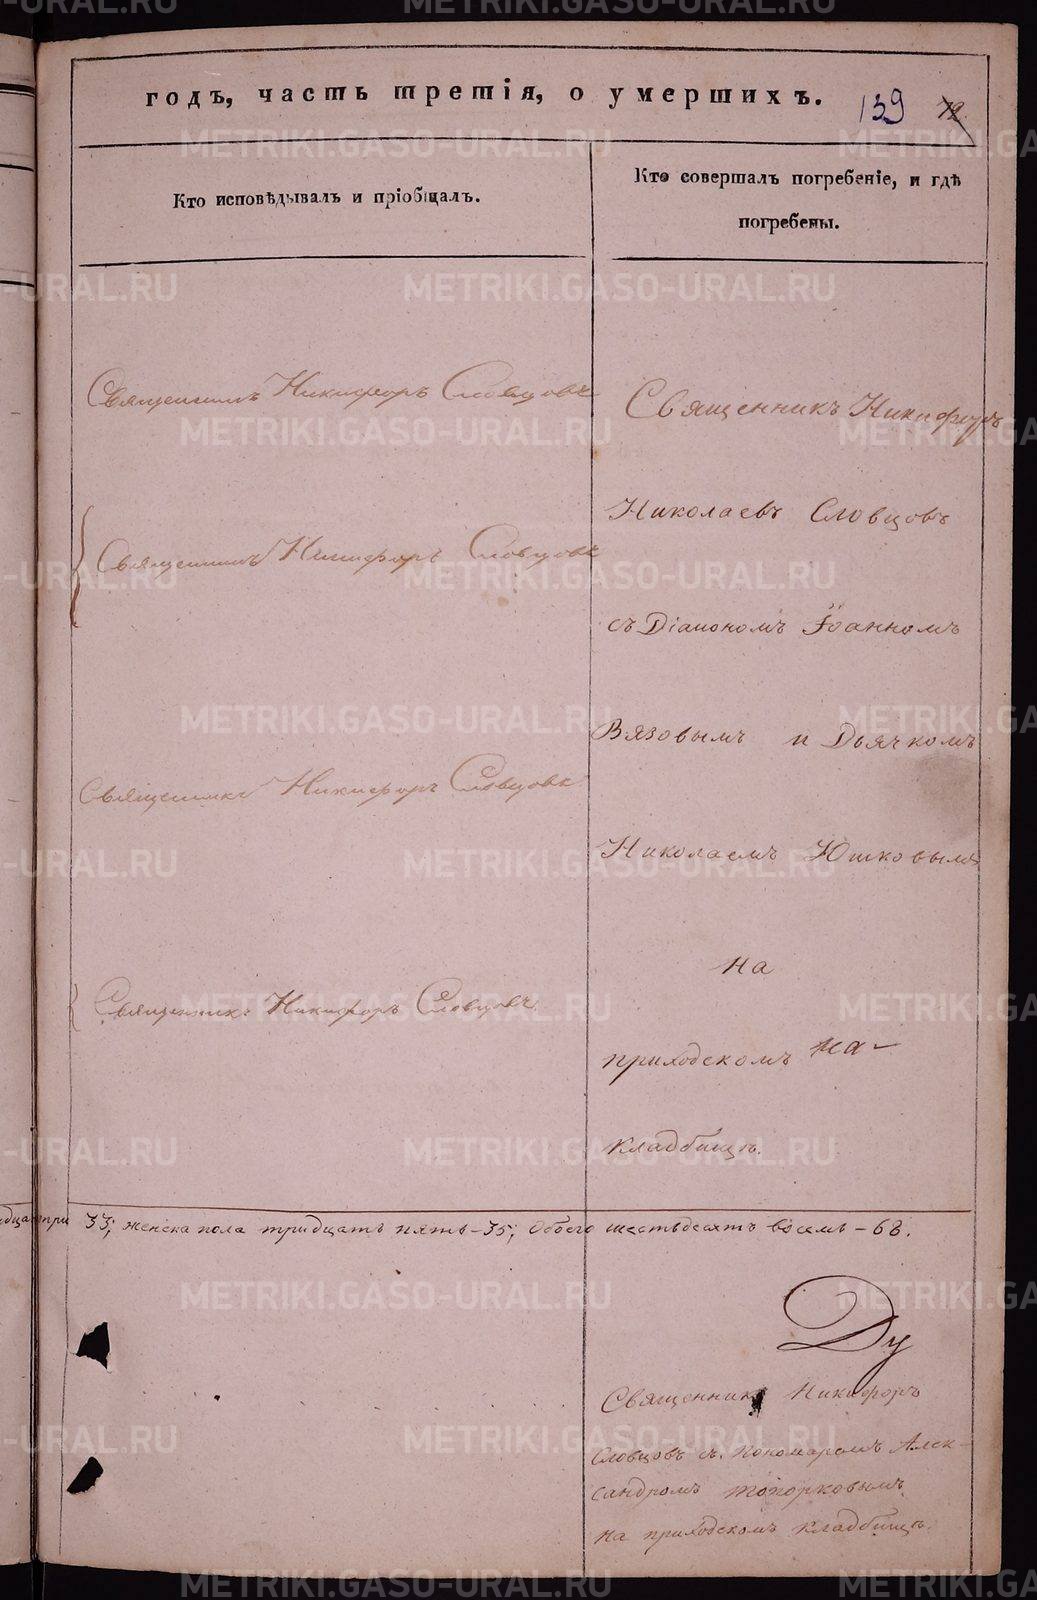 годъ, часть третія, о умершихъ.
139
Кто исповѣдывалъ и пріобщалъ.
Кто совершалъ погребеніе, и гдѣ
погребены.
Священникъ Никифоръ Словцовъ
Священникъ Никифоръ Словцовъ
Священникъ Никифоръ Словцовъ
Священникъ Никифоръ Словцовъ
Священникъ Никифоръ
Николаевъ Словцовъ
съ Діакономъ Іоанномъ
Вязовымъ и Дьячкомъ
Николаемъ Юшковымъ
на
приходскомъ на-
кладбищѣ.
33; женска пола тридцать пять-35; обоего шестьдесятъ восемь-68.
Ду
Священникъ Никифоръ
Словцовъ съ пономаремъ Алек-
сандромъ Топорковымъ
на приходскомъ кладбищѣ.
METRIKI.GASO-URAL.RU